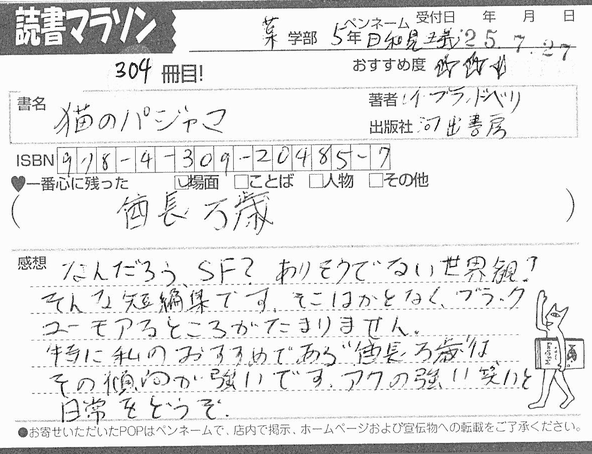 読書マラソン
ペンネーム 受付日 年 月 日
薬 学部 5年 日和見主義 '25.7.27
304 冊目!
おすすめ度
書名 猫のパジャマ
著者: レイ・ブラッドベリ
出版社: 河出書房
ISBN 978-4-309-20485-7
♥一番心に残った ☑場面 □ことば □人物 □その他
( 酋長万歳 )
感想 なんだろう、SF? ありそうでない世界観?
そんな短編集です。そこはかとなく、ブラック
ユーモアるところがたまりません。
特に私のおすすめである"酋長万歳"は、
その傾向が強いです。アクの強い笑いと
日常をどうぞ。
●お寄せいただいたPOPはペンネームで、店内で掲示、ホームページおよび宣伝物への転載をご了承ください。